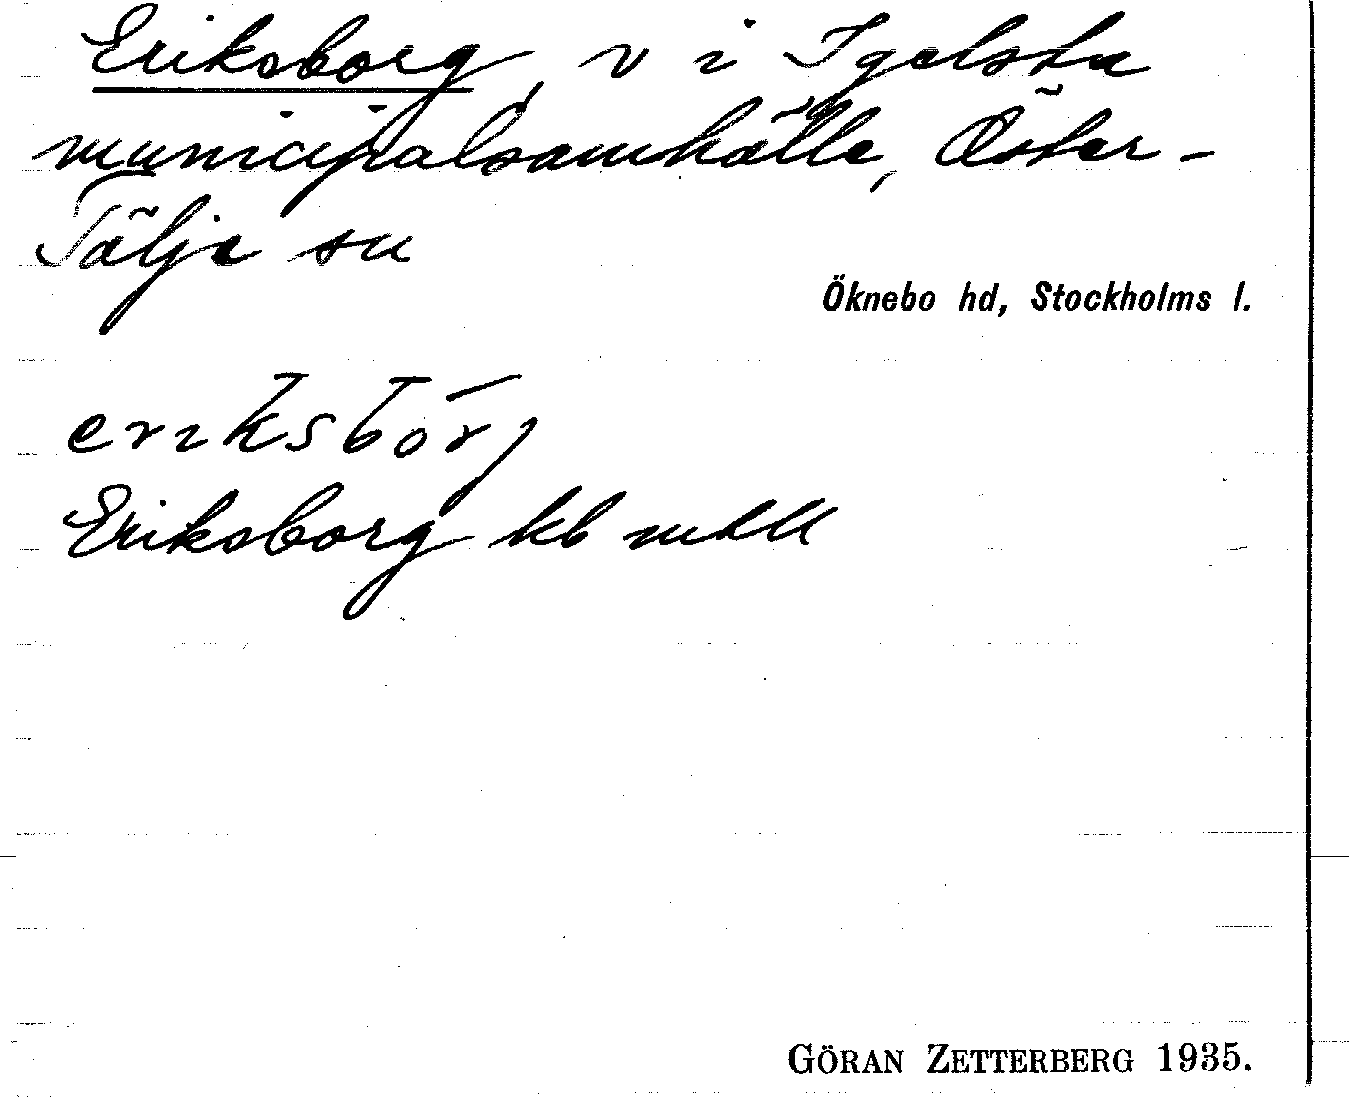 Eriksborg, v i Igelsta
municipalsamhälle, Öster-
Tälje sn
Öknebo hd, Stockholms l.
eriksbo̤r̄j
Eriksborg kb
GÖRAN ZETTERBERG 1935.